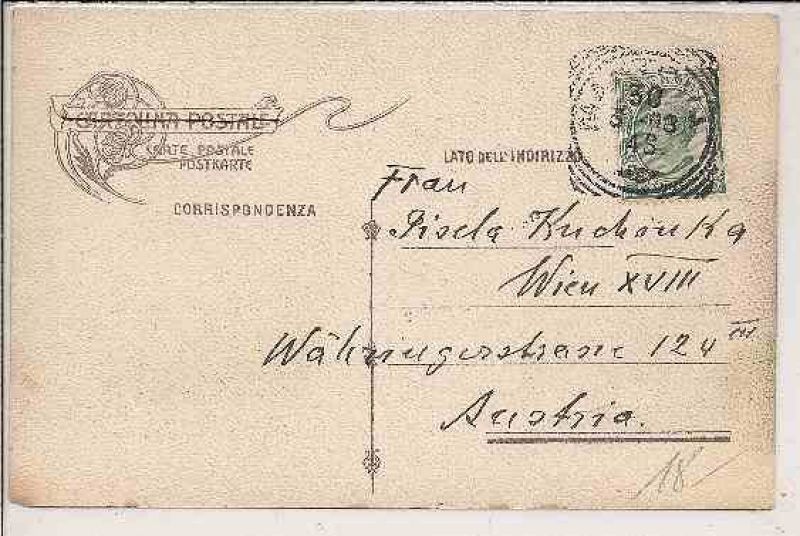 CARTOLINA POSTALE
CARTE POSTALE
POSTKARTE
CORRISPONDENZA
LATO DELL'INDIRIZZO
30
AS
Frau
Gisela Kuchinka
Wien XVIII
Währingerstrasse 124 III
Austria.
18